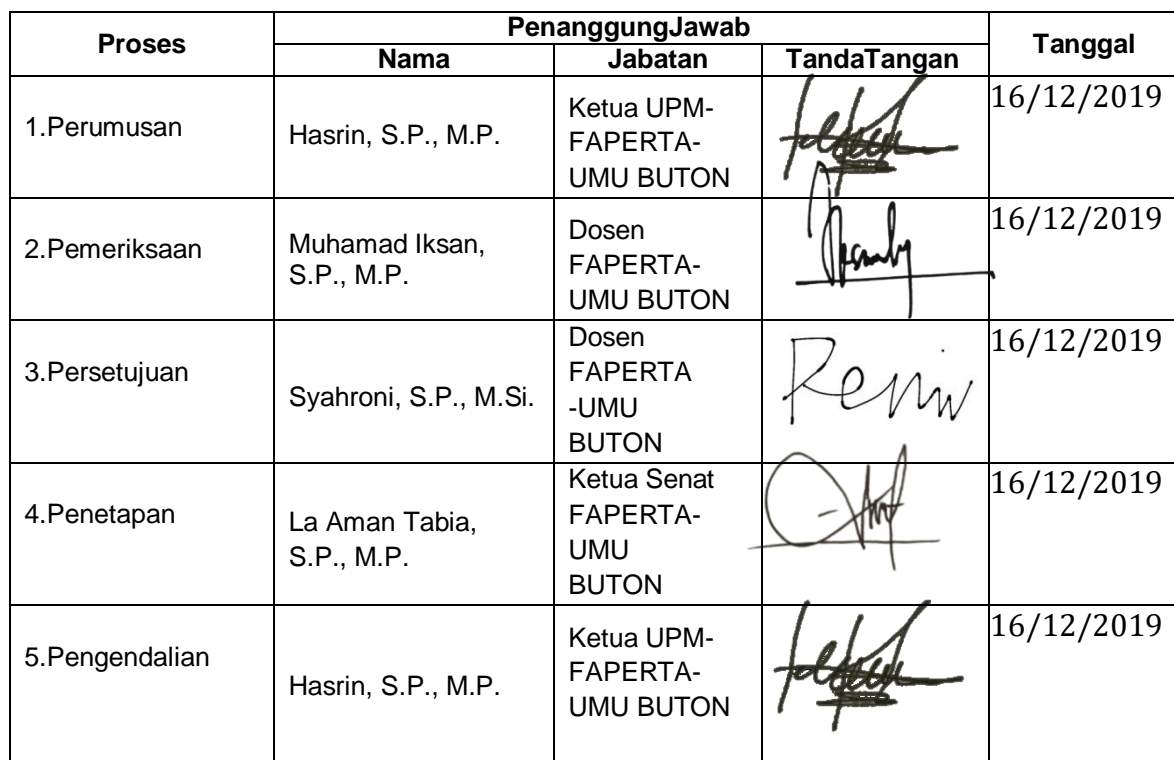 Proses
PenanggungJawab
Tanggal
Nama
Jabatan
TandaTangan
1.Perumusan
Hasrin, S.P., M.P.
Ketua UPM-
FAPERTA-
UMU BUTON
16/12/2019
2.Pemeriksaan
Muhamad Iksan,
S.P., M.P.
Dosen
FAPERTA-
UMU BUTON
16/12/2019
3.Persetujuan
Syahroni, S.P., M.Si.
Dosen
FAPERTA
-UMU
BUTON
16/12/2019
4.Penetapan
La Aman Tabia,
S.P., M.P.
Ketua Senat
FAPERTA-
UMU
BUTON
16/12/2019
5.Pengendalian
Hasrin, S.P., M.P.
Ketua UPM-
FAPERTA-
UMU BUTON
16/12/2019